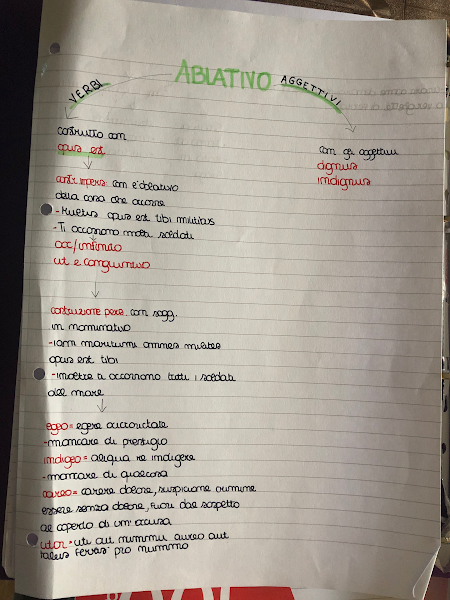 ABLATIVO
VERBI
AGGETTIVI
costrutto con
opus est
con gli aggettivi
dignus
indignus
costr. impers. con l'ablativo
della cosa che occorre
- opus est tibi
- Ti occorrono molti soldati
acc/infinito
ut e congiuntivo
costruzione pers. con sogg.
in nominativo
- iam maritumi omnes milites
opus est tibi
- inoltre ti occorrono tutti i soldati
del mare
egeo = egere auctoritate
- mancare di prestigio
indigeo = aliqua re indigere
- mancare di qualcosa
careo = carere dolore, suspicione crimine
essere senza dolore, fuori dal sospetto
al coperto di un'accusa
utor = uti aut nummu aureo aut
taleis ferreis pro nummo